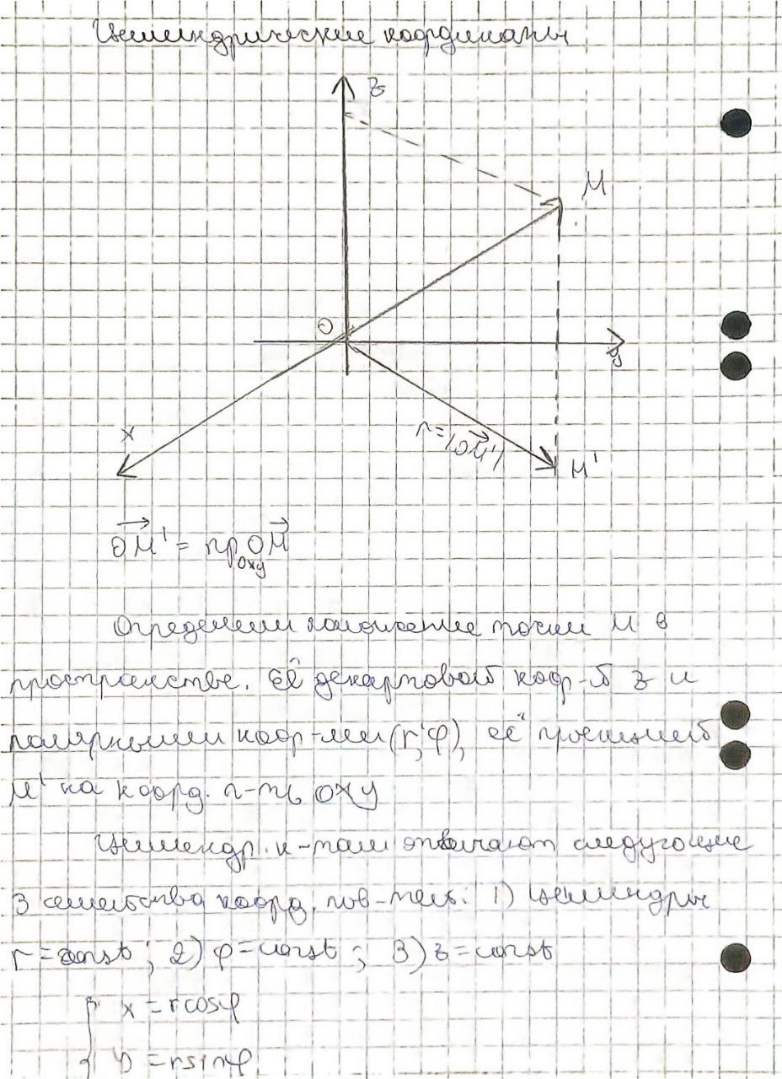 Цилиндрические координаты
z
M
O
y
x
r=|OM'|
M'
OM' = пр OM
Oxy
Определим положение точки M в
пространстве. Её декартовой коор-й z и
полярными коор-ми (r,φ), её проекцией
M' на коорд. п-ть OXY
Цилиндр. к-там отвечают следующие
3 семейства коорд. пов-тей: 1) Цилиндры
r=const; 2) φ=const; 3) z=const
x=rcosφ
y=rsinφ